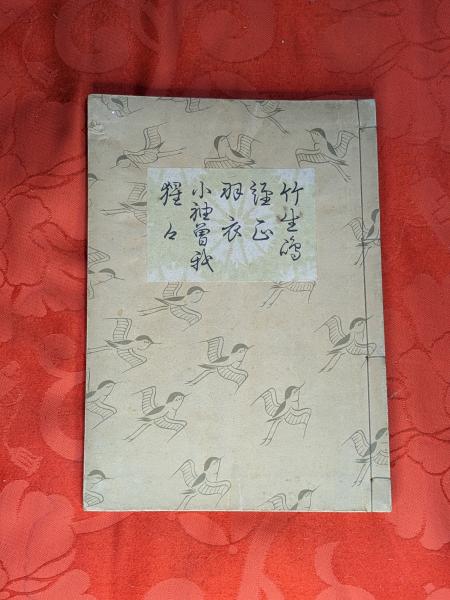 竹生嶋
經正
羽衣
小袖曽我
猩々